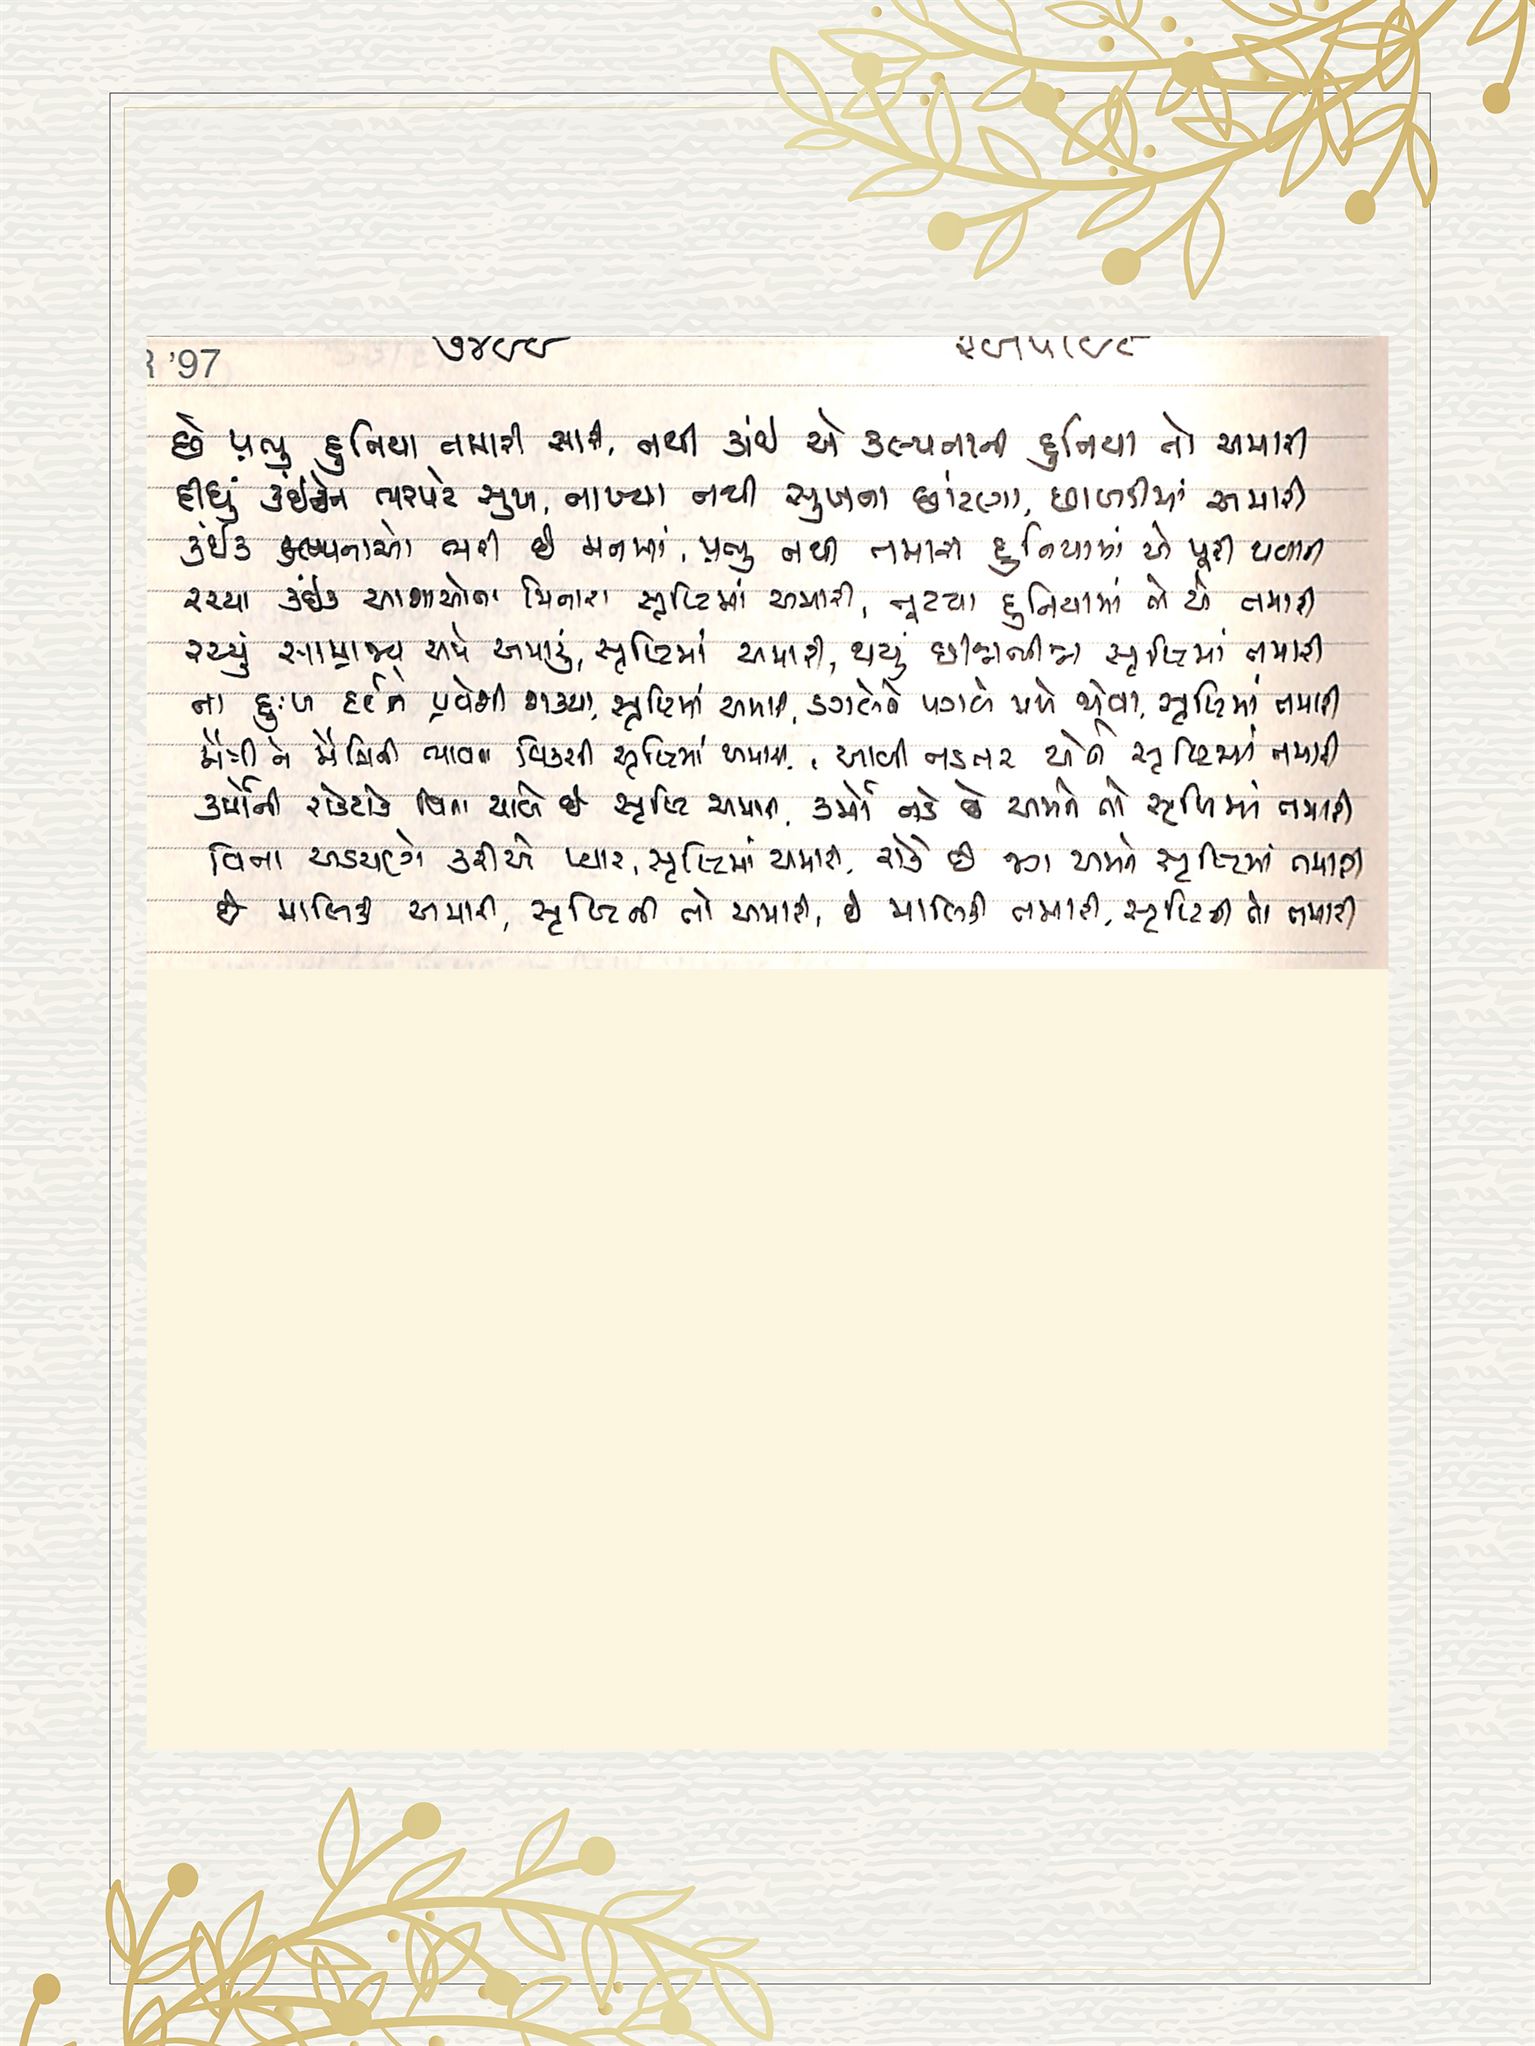 '97
છે પ્રભુ દુનિયા તમારી સારી, નથી કાંઈ એ કલ્પનાની દુનિયા તો અમારી
દીધું કંઈકને ભરપેટ સુખ, નાખ્યા નથી સુખના છાંટણા, છાબડીમાં અમારી
કંઈક કલ્પનાઓ ભરી છે મનમાં, પ્રભુ નથી તમારી દુનિયામાં એ પૂરી થવાની
રચ્યા કંઈક આશાઓના મિનારા સૃષ્ટિમાં અમારી, તૂટયા દુનિયામાં તો એ તમારી
રચ્યું સામ્રાજ્ય અમે અમારું, સૃષ્ટિમાં અમારી, થયું છીન્નભીન્ન સૃષ્ટિમાં તમારી
ના દુઃખ દર્દને પ્રવેશી શક્યા, સૃષ્ટિમાં અમારી, ડગલેને પગલે મળે જોવા, સૃષ્ટિમાં તમારી
મૈત્રી ને મૈત્રિની ભાવના વિકસી સૃષ્ટિમાં અમારી, આવી નડતર એને સૃષ્ટિમાં તમારી
કર્મોની રોકટોક વિના ચાલે છે સૃષ્ટિ અમારી, કર્મો નડે છે અમને તો સૃષ્ટિમાં તમારી
વિના અડચણે કરીએ પ્યાર, સૃષ્ટિમાં અમારી, રોકે છે જગ અમને સૃષ્ટિમાં તમારી
છે માલિકી અમારી, સૃષ્ટિની તો અમારી, છે માલિકી તમારી, સૃષ્ટિની તો તમારી